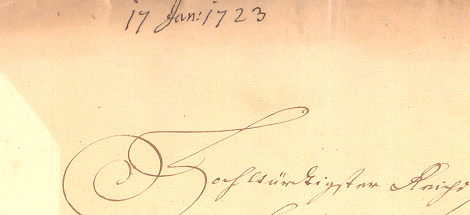 17 Jan: 1723
Hochwürdigster Reichs